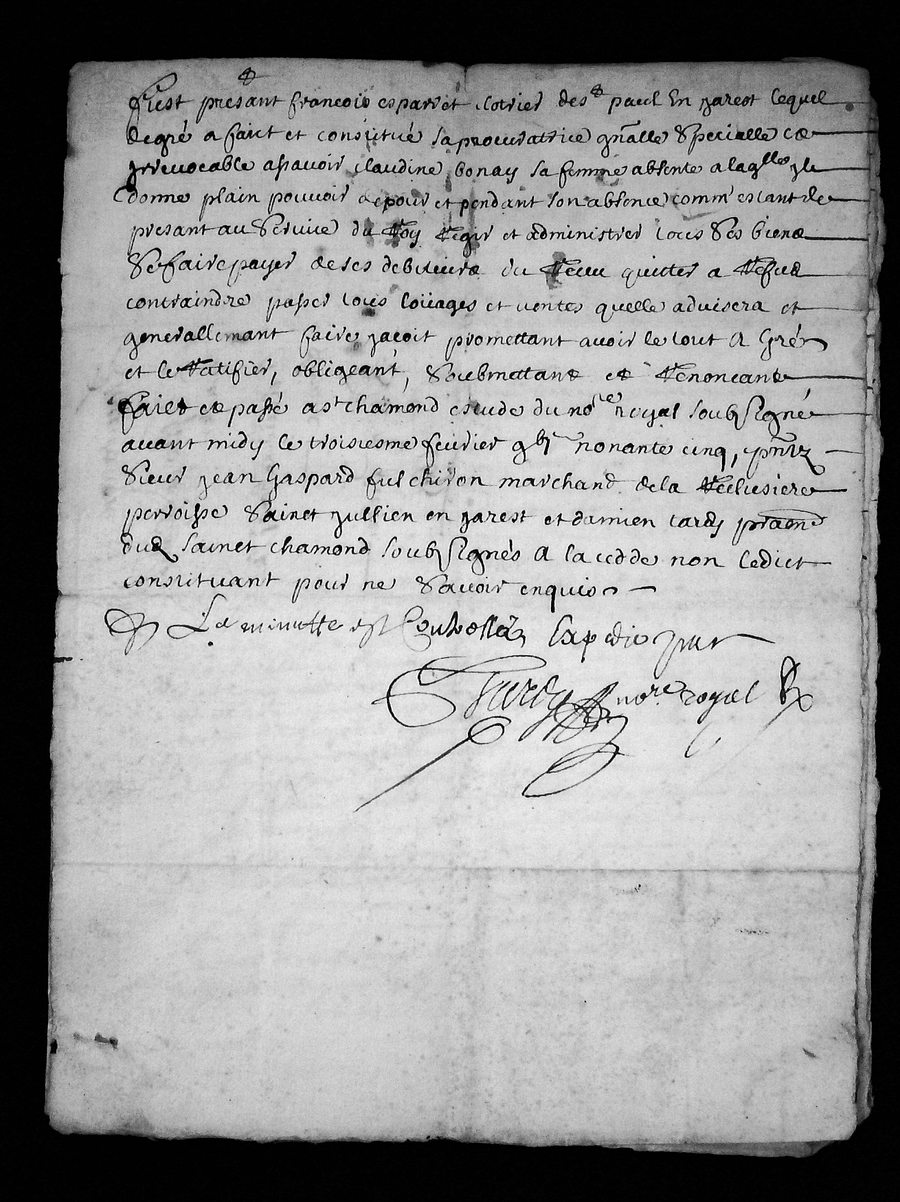 fust presant francois esparret clotrier de st paul En jarest lequel
de gré a faict et constitué sa procuratrice gnalle Specialle et
jrrevocable assavoir claudine bonay sa femme absente a laqlle jl
donne plain pouvoir de pour et pendant son absence comm' estant de
presant au Service du Roy Regir et administrer tous Ses biens
Se faire payer de ses debiteurs du Receu quitter a Refus
contraindre passer tous loüages et ventes quelle advisera et
generallemant faire jacoit promettant avoir le tout a Gré
et le Ratifier, obligeant, Soubmettant et Renonceant
faict et passé a st chamond estude du nore royal soubsigné
avant midy le troisiesme febvrier nonante cinq, pnts
Sieur jean Gaspard fulchiron marchand de la Reclusiere
perroisse Sainct jullien en jarest et damien tardy
dud sainct chamond soubsignés a la cedde non ledict
constituant pour ne Savoir enquis
La minutte est Conterollée Expedié pur
Tardy nore royal